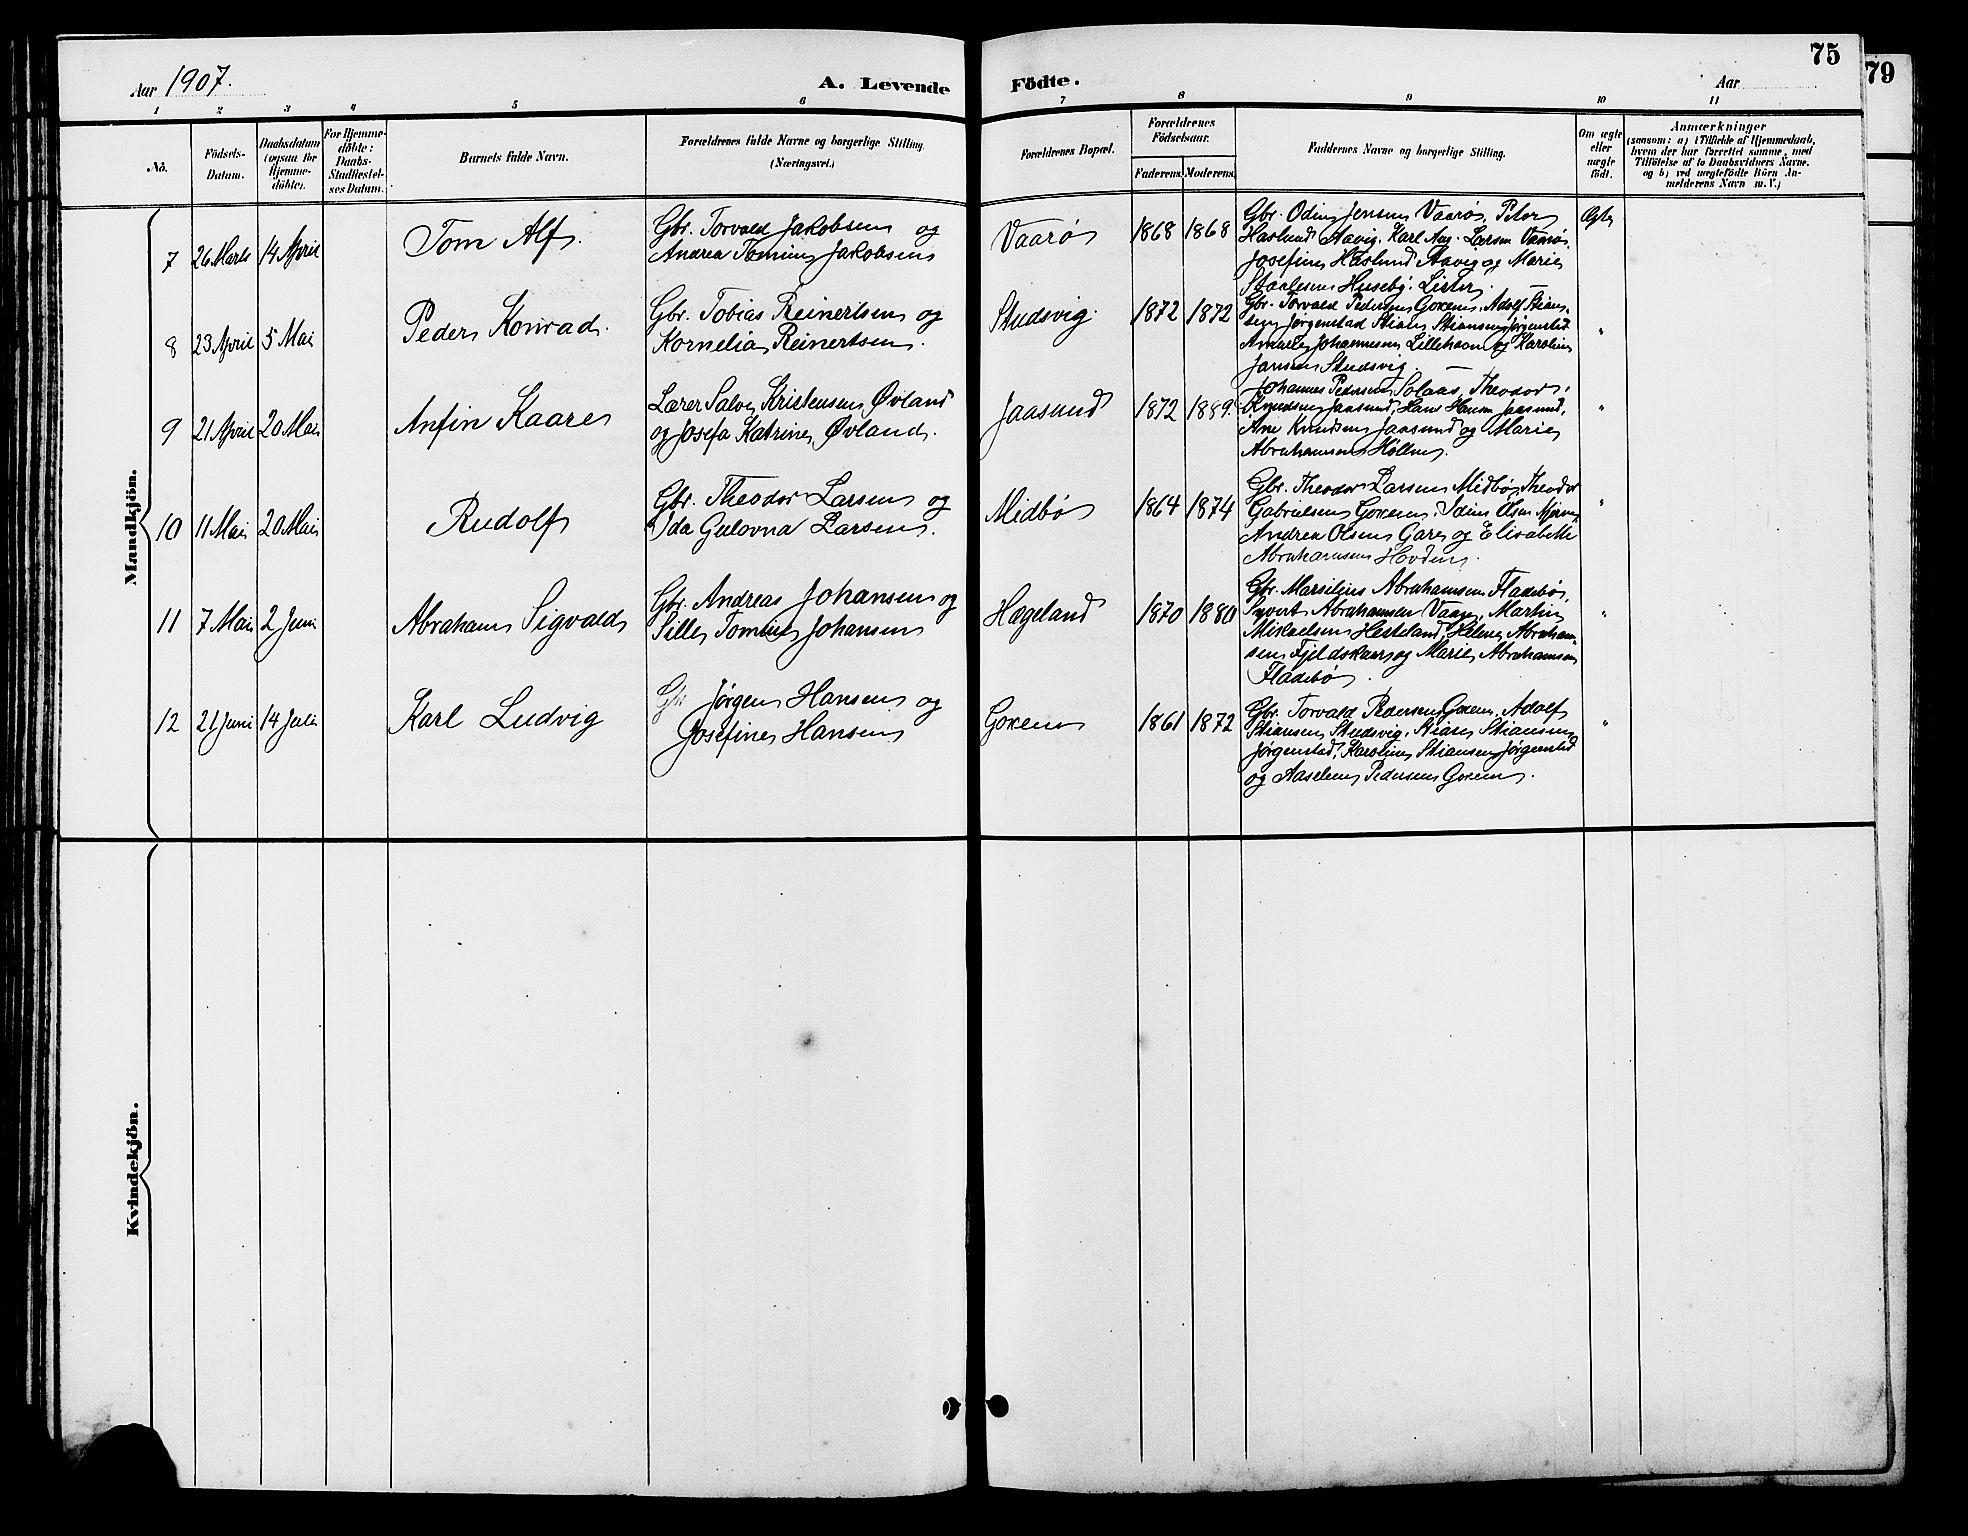 Aar 1907.
A. Levende
Födte.
Aar
75
79
1 2 3 4 5 6 7 8 9 10 11
No.
Födsels-
Datum.
Daabsdatum
(ogsaa for
Hjemme-
döbte).
For Hjemme-
döbte:
Daabs-
Stadfæstel-
ses Datum.
Barnets fulde Navn.
Forældrenes fulde Navne og borgerlige Stilling.
(Næringsvei.)
Forældrenes Bopæl.
Forældrenes
Födselsaar.
Faderens. Moderens.
Faddernes Navne og borgerlige Stilling.
Om ægte
eller
uægte
födt.
Anmærkninger
(saasom: a) i Tilfælde af Hjemmedaab,
hvem der har forrettet samme, med
Tilföielse af to Daabsvidners Navne.
og b) ved uægtefödte Börn An-
melderens Navn m. V.)
Mandkjön.
7 26 Marts 14 April
Tom Alf.
Gbr. Torvald Jakobsen og
Andrea Tomine Jakobsen
Vaarø
1868 1868
Gbr. Odin Jensen Vaarø, Peter
Haslund Aavig. Karl Aug. Larsen Vaarø,
Josefine Haslund Aavig og Marie
Staalesen Huseby. Lister.
Ægte
8 23 April 5 Mai
Peder Konrad.
Gbr. Tobias Reinertsen og
Kornelia Reinertsen.
Studsvig.
1872 1872
Gbr. Torvald Pedersen Goxem. Adolf Stian-
sen Jørgenstad Stian Stiansen Jørgenstad
Amalie Johannesen Lillehavn og Karoline
Jansen Studsvig.
"
9 21 April 20 Mai
Anfin Kaare
Lærer Salve Kristensen Øvland
og Josefa Katrine Øvland.
Jaasund
1872 1889.
Johannes Pedersen Solaas, Theodor
Knudsen Jaasund, Hans Hansen Jaasund,
Ane Knudsen Jaasund og Marie
Abrahamsen Høllen.
"
10 11 Mai 20 Mai
Rudolf
Gbr. Theodor Larsen og
Ida Gulovna Larsen.
Midbø
1864 1874
Gbr. Theodor Larsen Midbø, Theodor
Gabrielsen Goxem. Odin Olsen
Andrea Olsen Gare og Elisabeth
Abrahamsen Hovden.
"
11 7 Mai 2 Juni
Abraham Sigvald
Gbr. Andreas Johansen og
Sille Tomine Johansen
Hægeland
1870 1880
Gbr. Marselius Abrahamsen Fladebø,
Syvert Abrahamsen Vaage, Martin
Mikaelsen Hesteland, Helene Abraham-
sen Fjeldskaar og Marie Abrahamsen
Fladebø.
"
12 21 Juni 14 Juli
Karl Ludvig
Gbr Jørgen Hansen og
Josefine Hansen
Goxem
1861 1872
Gbr. Torvald Pedersen Goxem. Adolf
Stiansen Studsvig. Stian Stiansen
Jørgenstad, Karoline Stiansen Jørgenstad
og Aaselene Pedersen Goxem.
"
Kvindekjön.